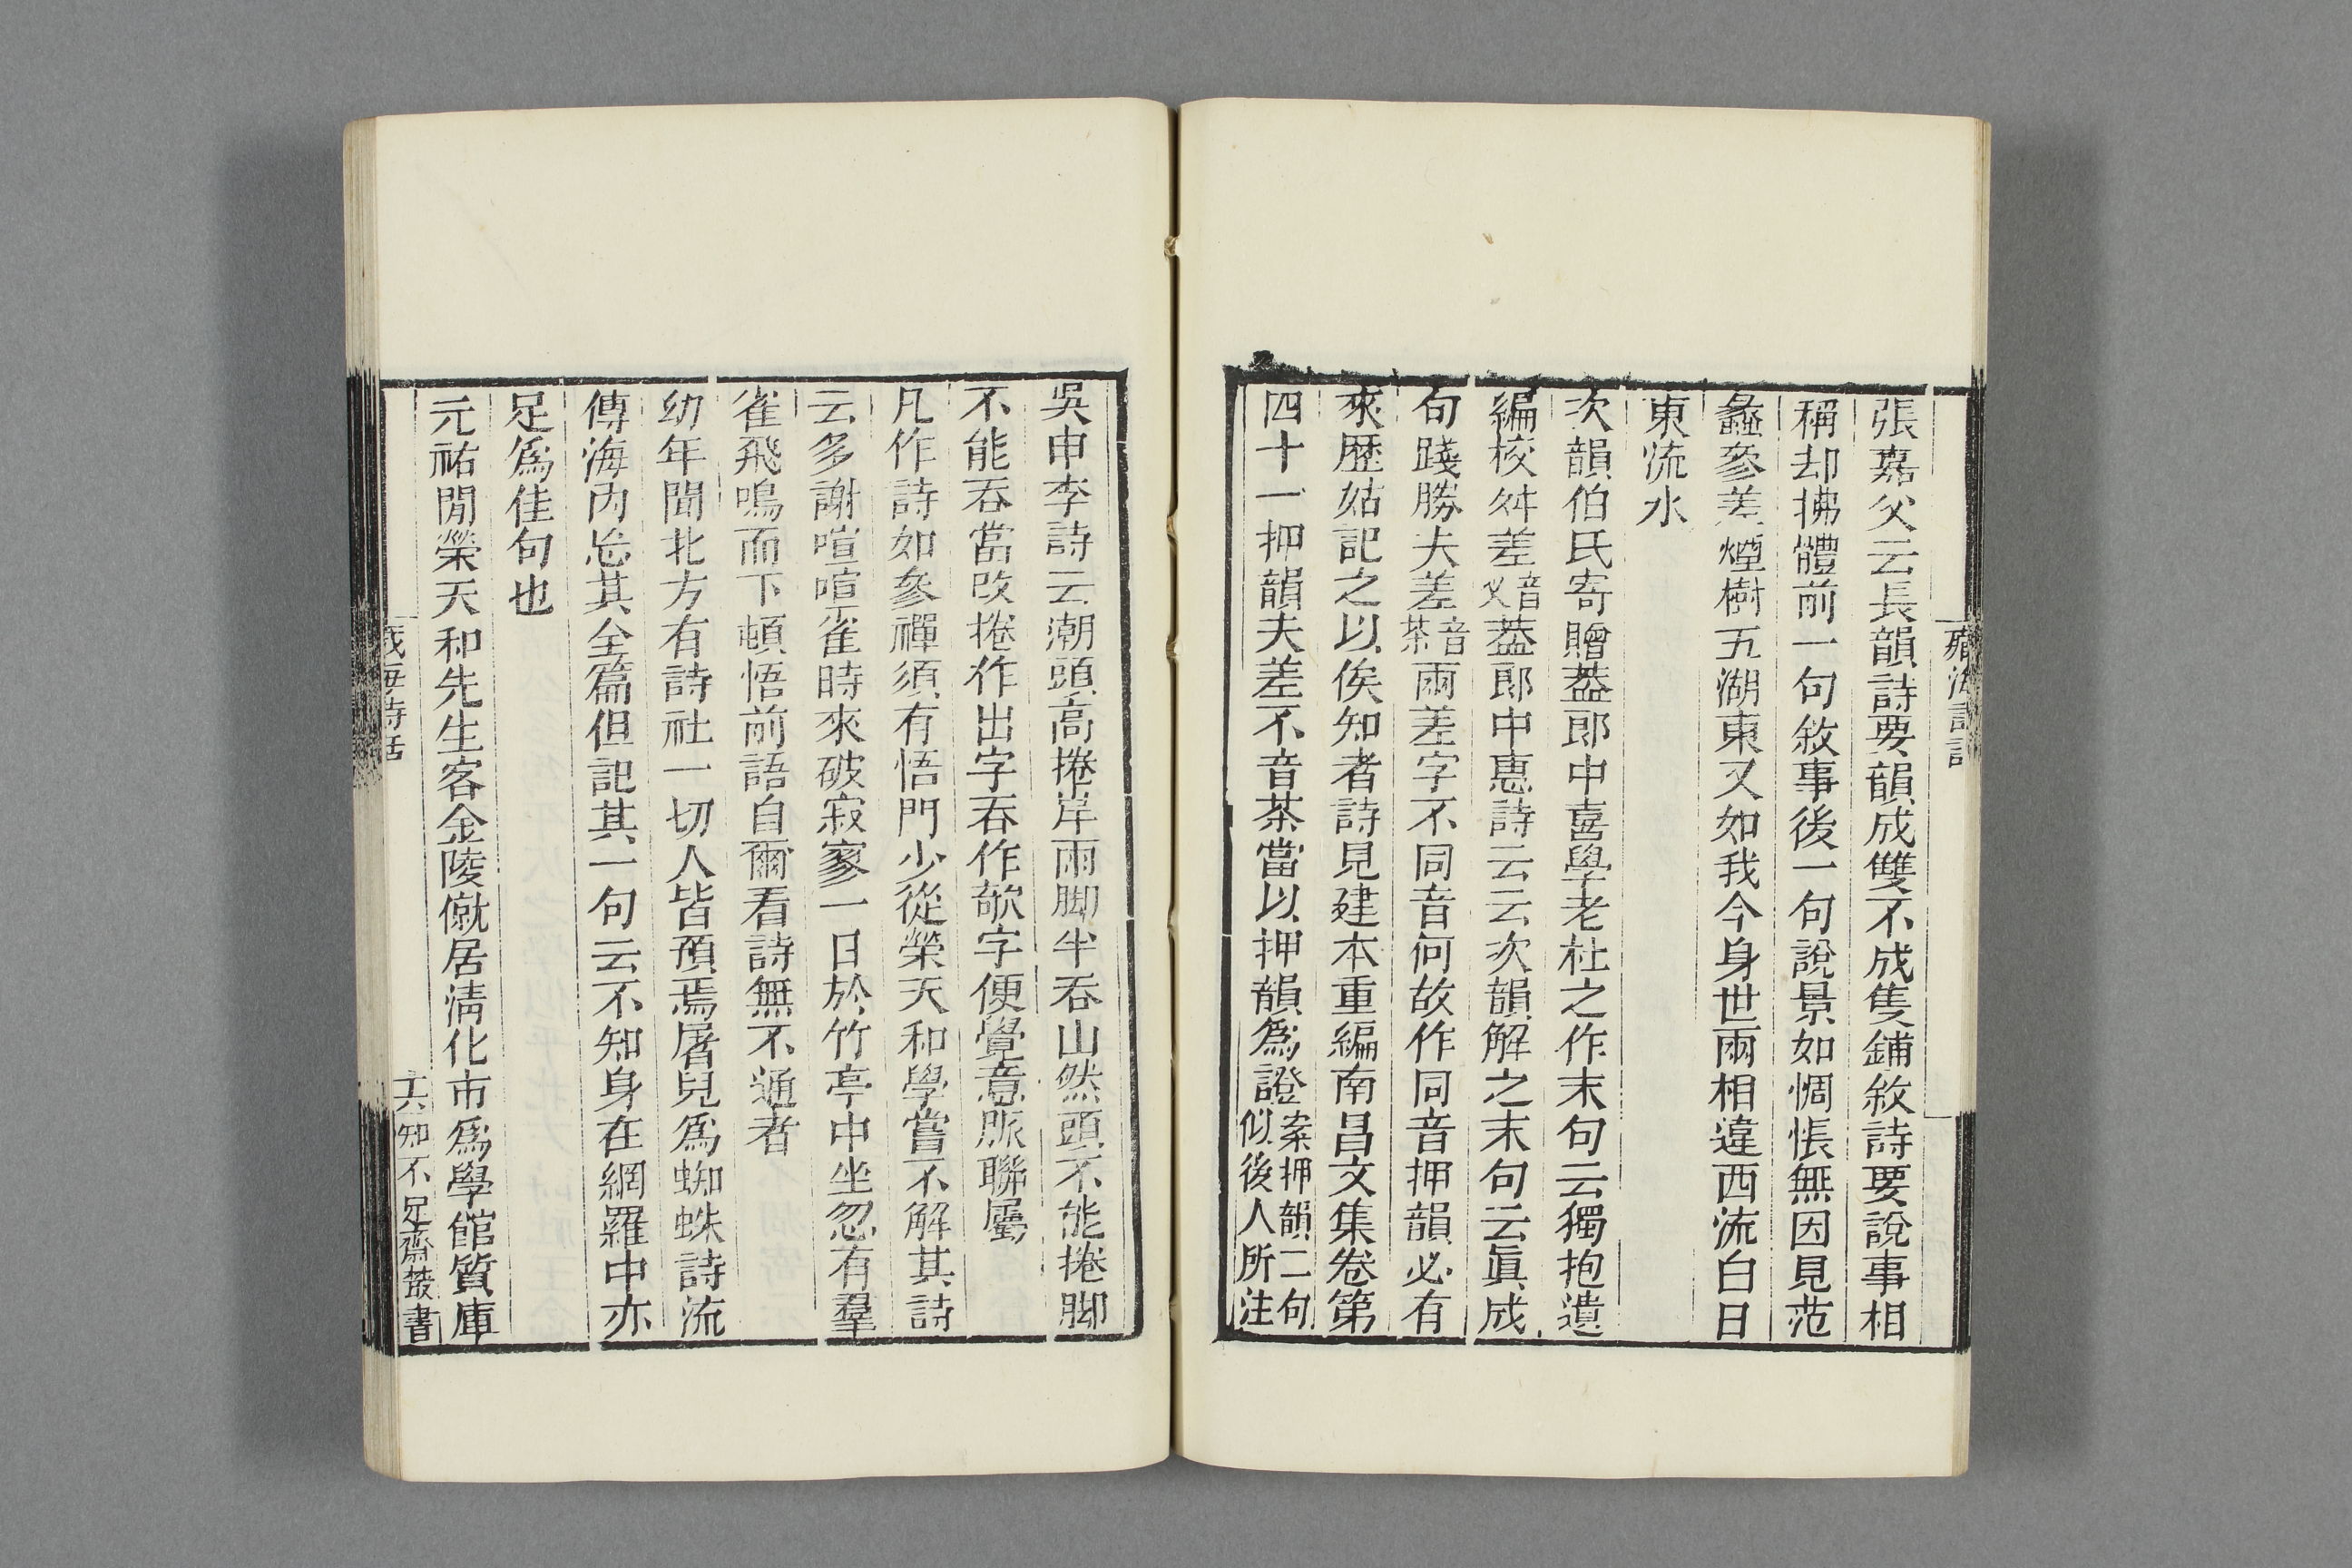 張嘉父云長韻詩要韻成雙不成隻鋪敘詩要說事相
稱却拂體前一句敘事後一句說景如惆悵無因見范
蠡參差煙樹五湖東又如我今身世兩相違西流白日
東流水
次韻伯氏寄贈葢郎中喜學老杜之作末句云獨抱遺
編校舛差音乂葢郎中惠詩云云次韻解之末句云眞成
句踐勝夫差音茶兩差字不同音何故作同音押韻必有
來歷姑記之以俟知者詩見建本重編南昌文集卷第
四十一押韻夫差不音茶當以押韻爲證案押韻二句似後人所注
吳申李詩云潮頭高捲岸雨脚半吞山然頭不能捲脚
不能吞當改捲作出字吞作欹字便覺意脈聯屬
凡作詩如參禪須有悟門少從榮天和學嘗不解其詩
云多謝喧喧雀時來破寂寥一日於竹亭中坐忽有羣
雀飛鳴而下頓悟前語自爾看詩無不通者
幼年聞北方有詩社一切人皆預焉屠兒爲蜘蛛詩流
傳海內忘其全篇但記其一句云不知身在網羅中亦
足爲佳句也
元祐閒榮天和先生客金陵僦居淸化市爲學館質庫
海詩話
六知不足齋叢書